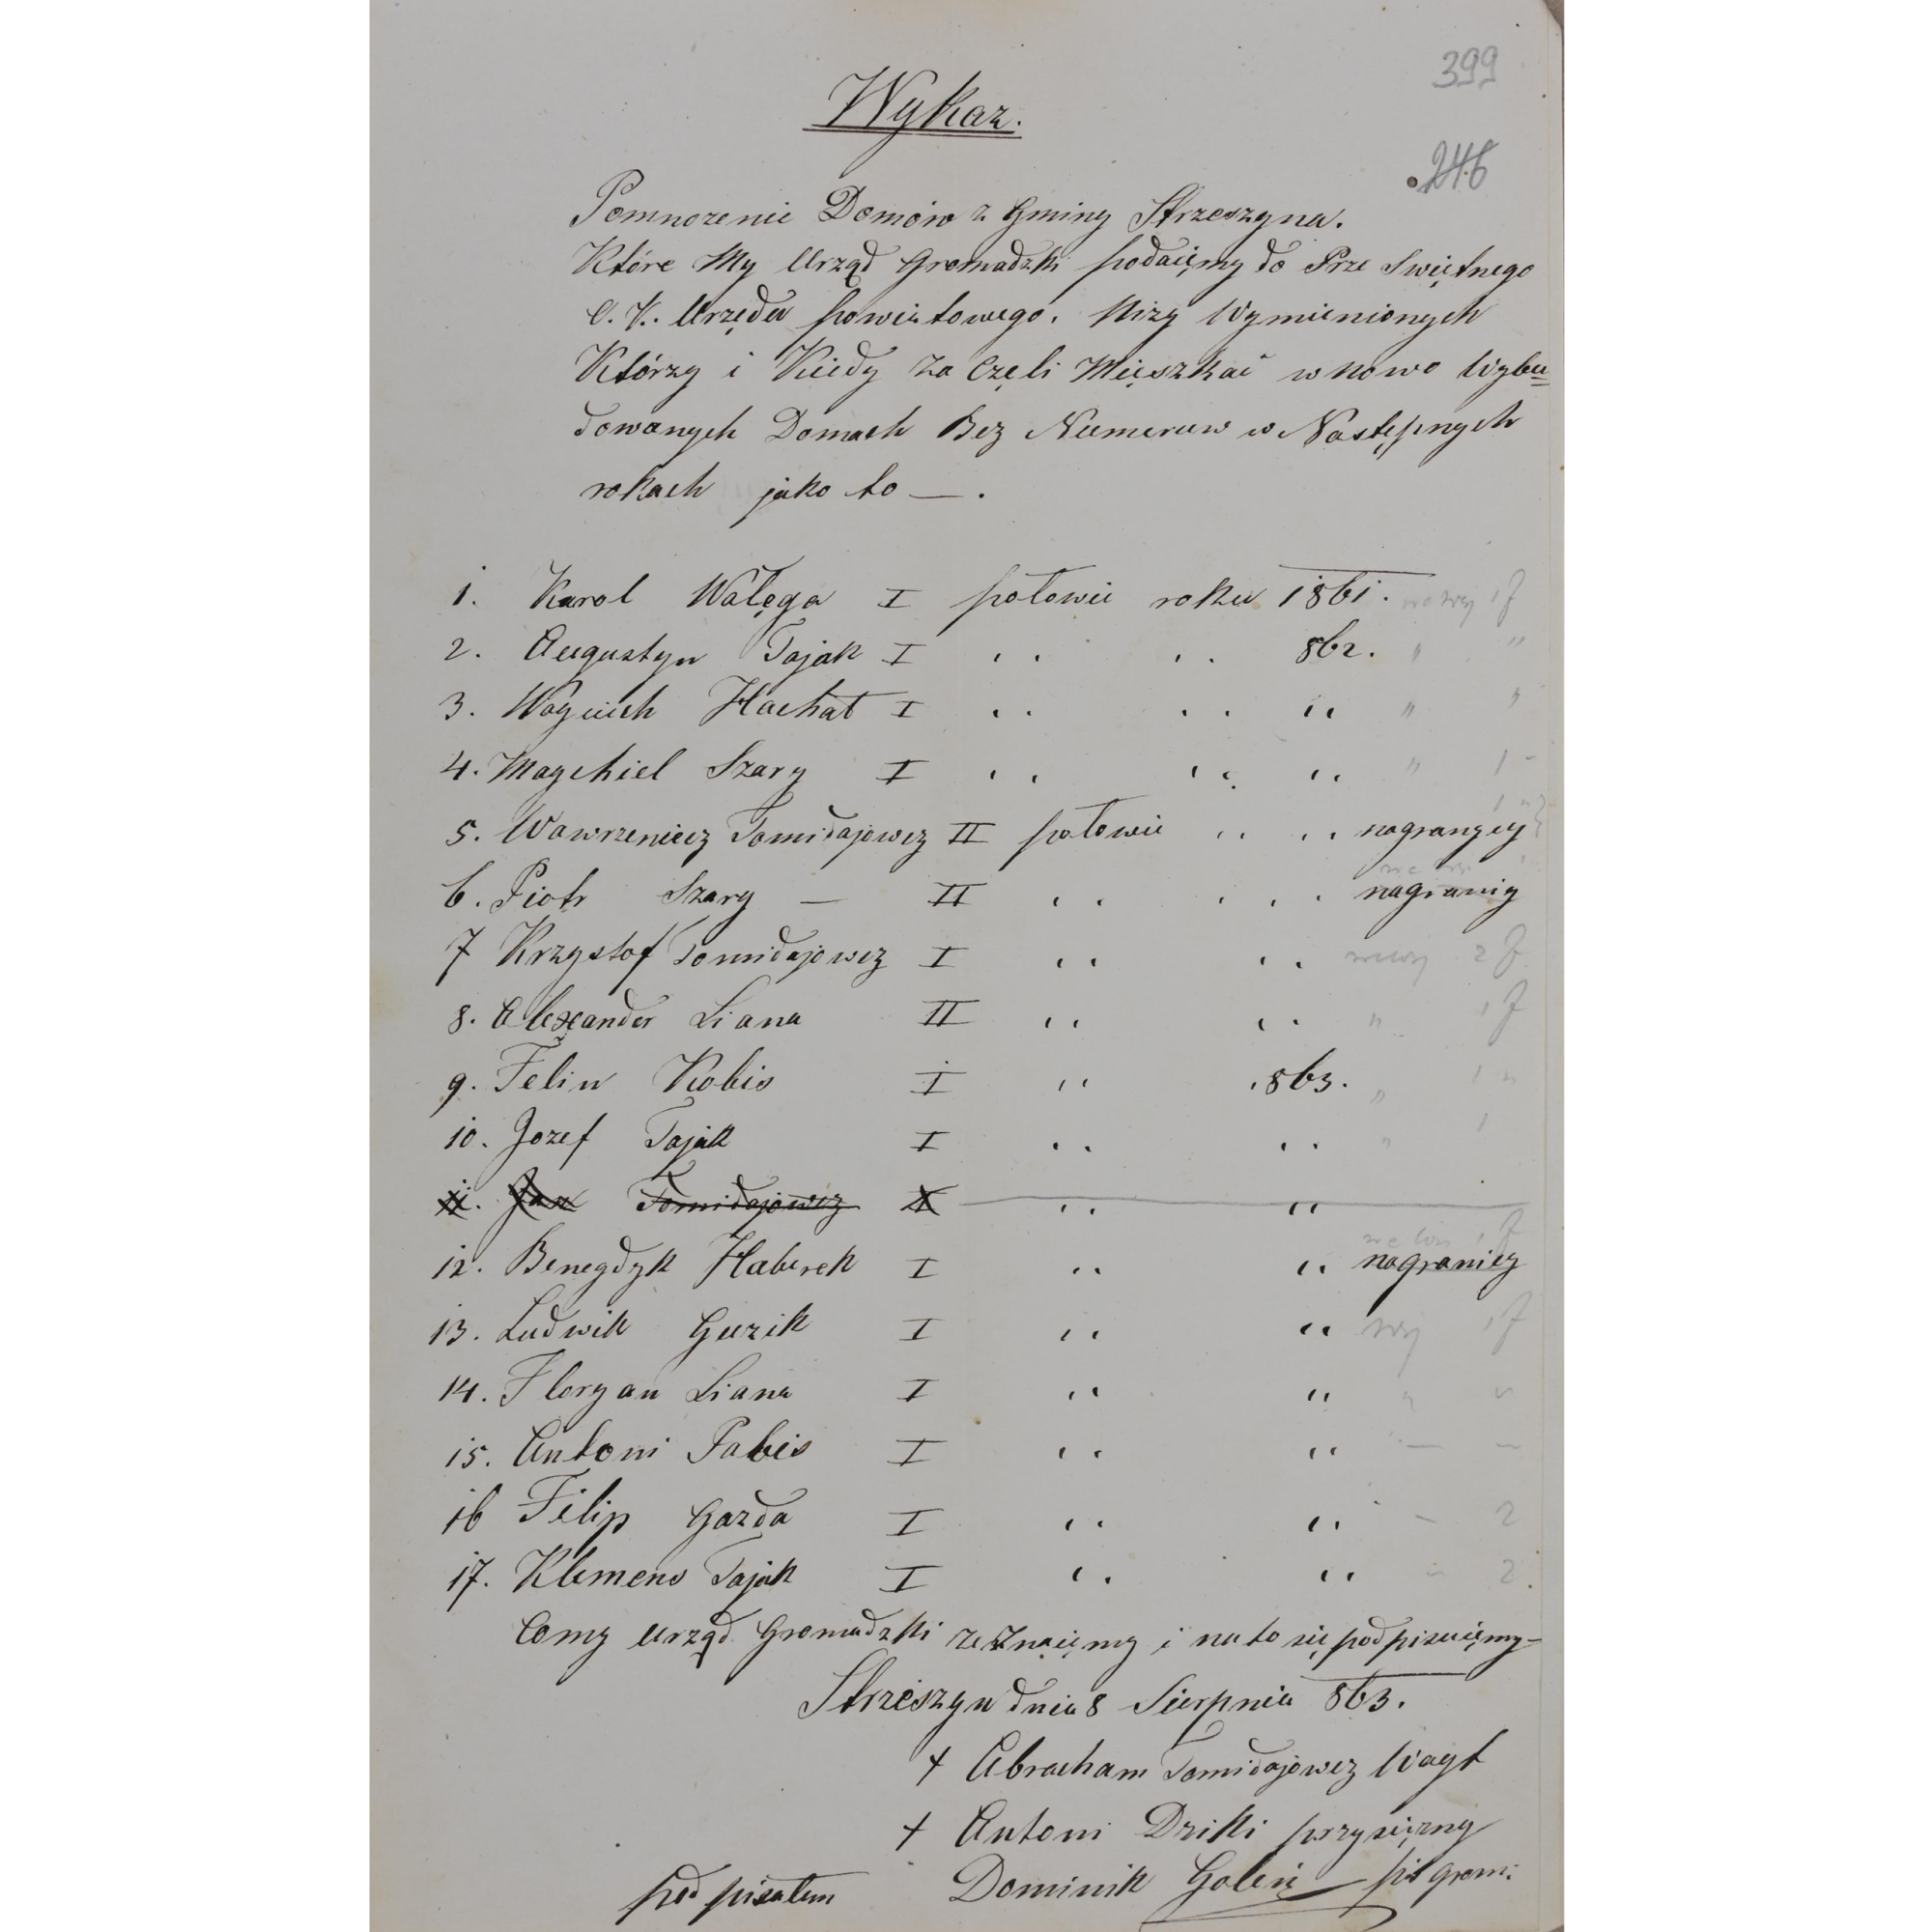 399
Wykaz.
246
Pomnozenie Domów z Gminy Strzeszyna.
Które My Urząd Gromadzki podaięmy do Prze Swiętnego
C. K. Urzędu powiatowego. Nizy Wymienionych
Którzy i Kiedy Za Częli Mięszkać w nowo Wybu=
dowanych Domach Bez Numeruw w Następnych
rokach jako to — .
1. Karol Wałęga I połowie roku 1861. nowy 1 f
2. Augustyn Tajak I " " 862. " "
3. Woyciech Hachał I " " " " "
4. Maychiel Szary I " " " " 1 -
5. Wawrzeniecz Tomidajowcz II połowie " " nagranycy
6. Piotr Szary — II " " " nagranicy
7 Krzystof Tomidajowcz I " " nowy 2 f
8. Alexander Liana II " " " 1 f
9. Felin Kobis I " 863. " 1 "
10. Jozef Tajak I " " " 1
11. Jan Tomidajowcz I " "
12. Benegdyk Haberek I " " nagranicy 1 f
13. Ludwik Guzik I " " 1 f
14. Floryan Liana I " " " "
15. Antoni Pabis I " " — –
16 Filip Gazda I " " – 2
17. Klemens Tajak I " " – 2
Comy Urząd Gromadzki zeznaięmy i na to się podpisuięmy–
Strzészyn dnia 8 Sierpnia 863.
+ Abracham Tomidajowcz Wayt
+ Antoni Dziki przysięzny
pod pisałem Dominik Goleń pis grom: